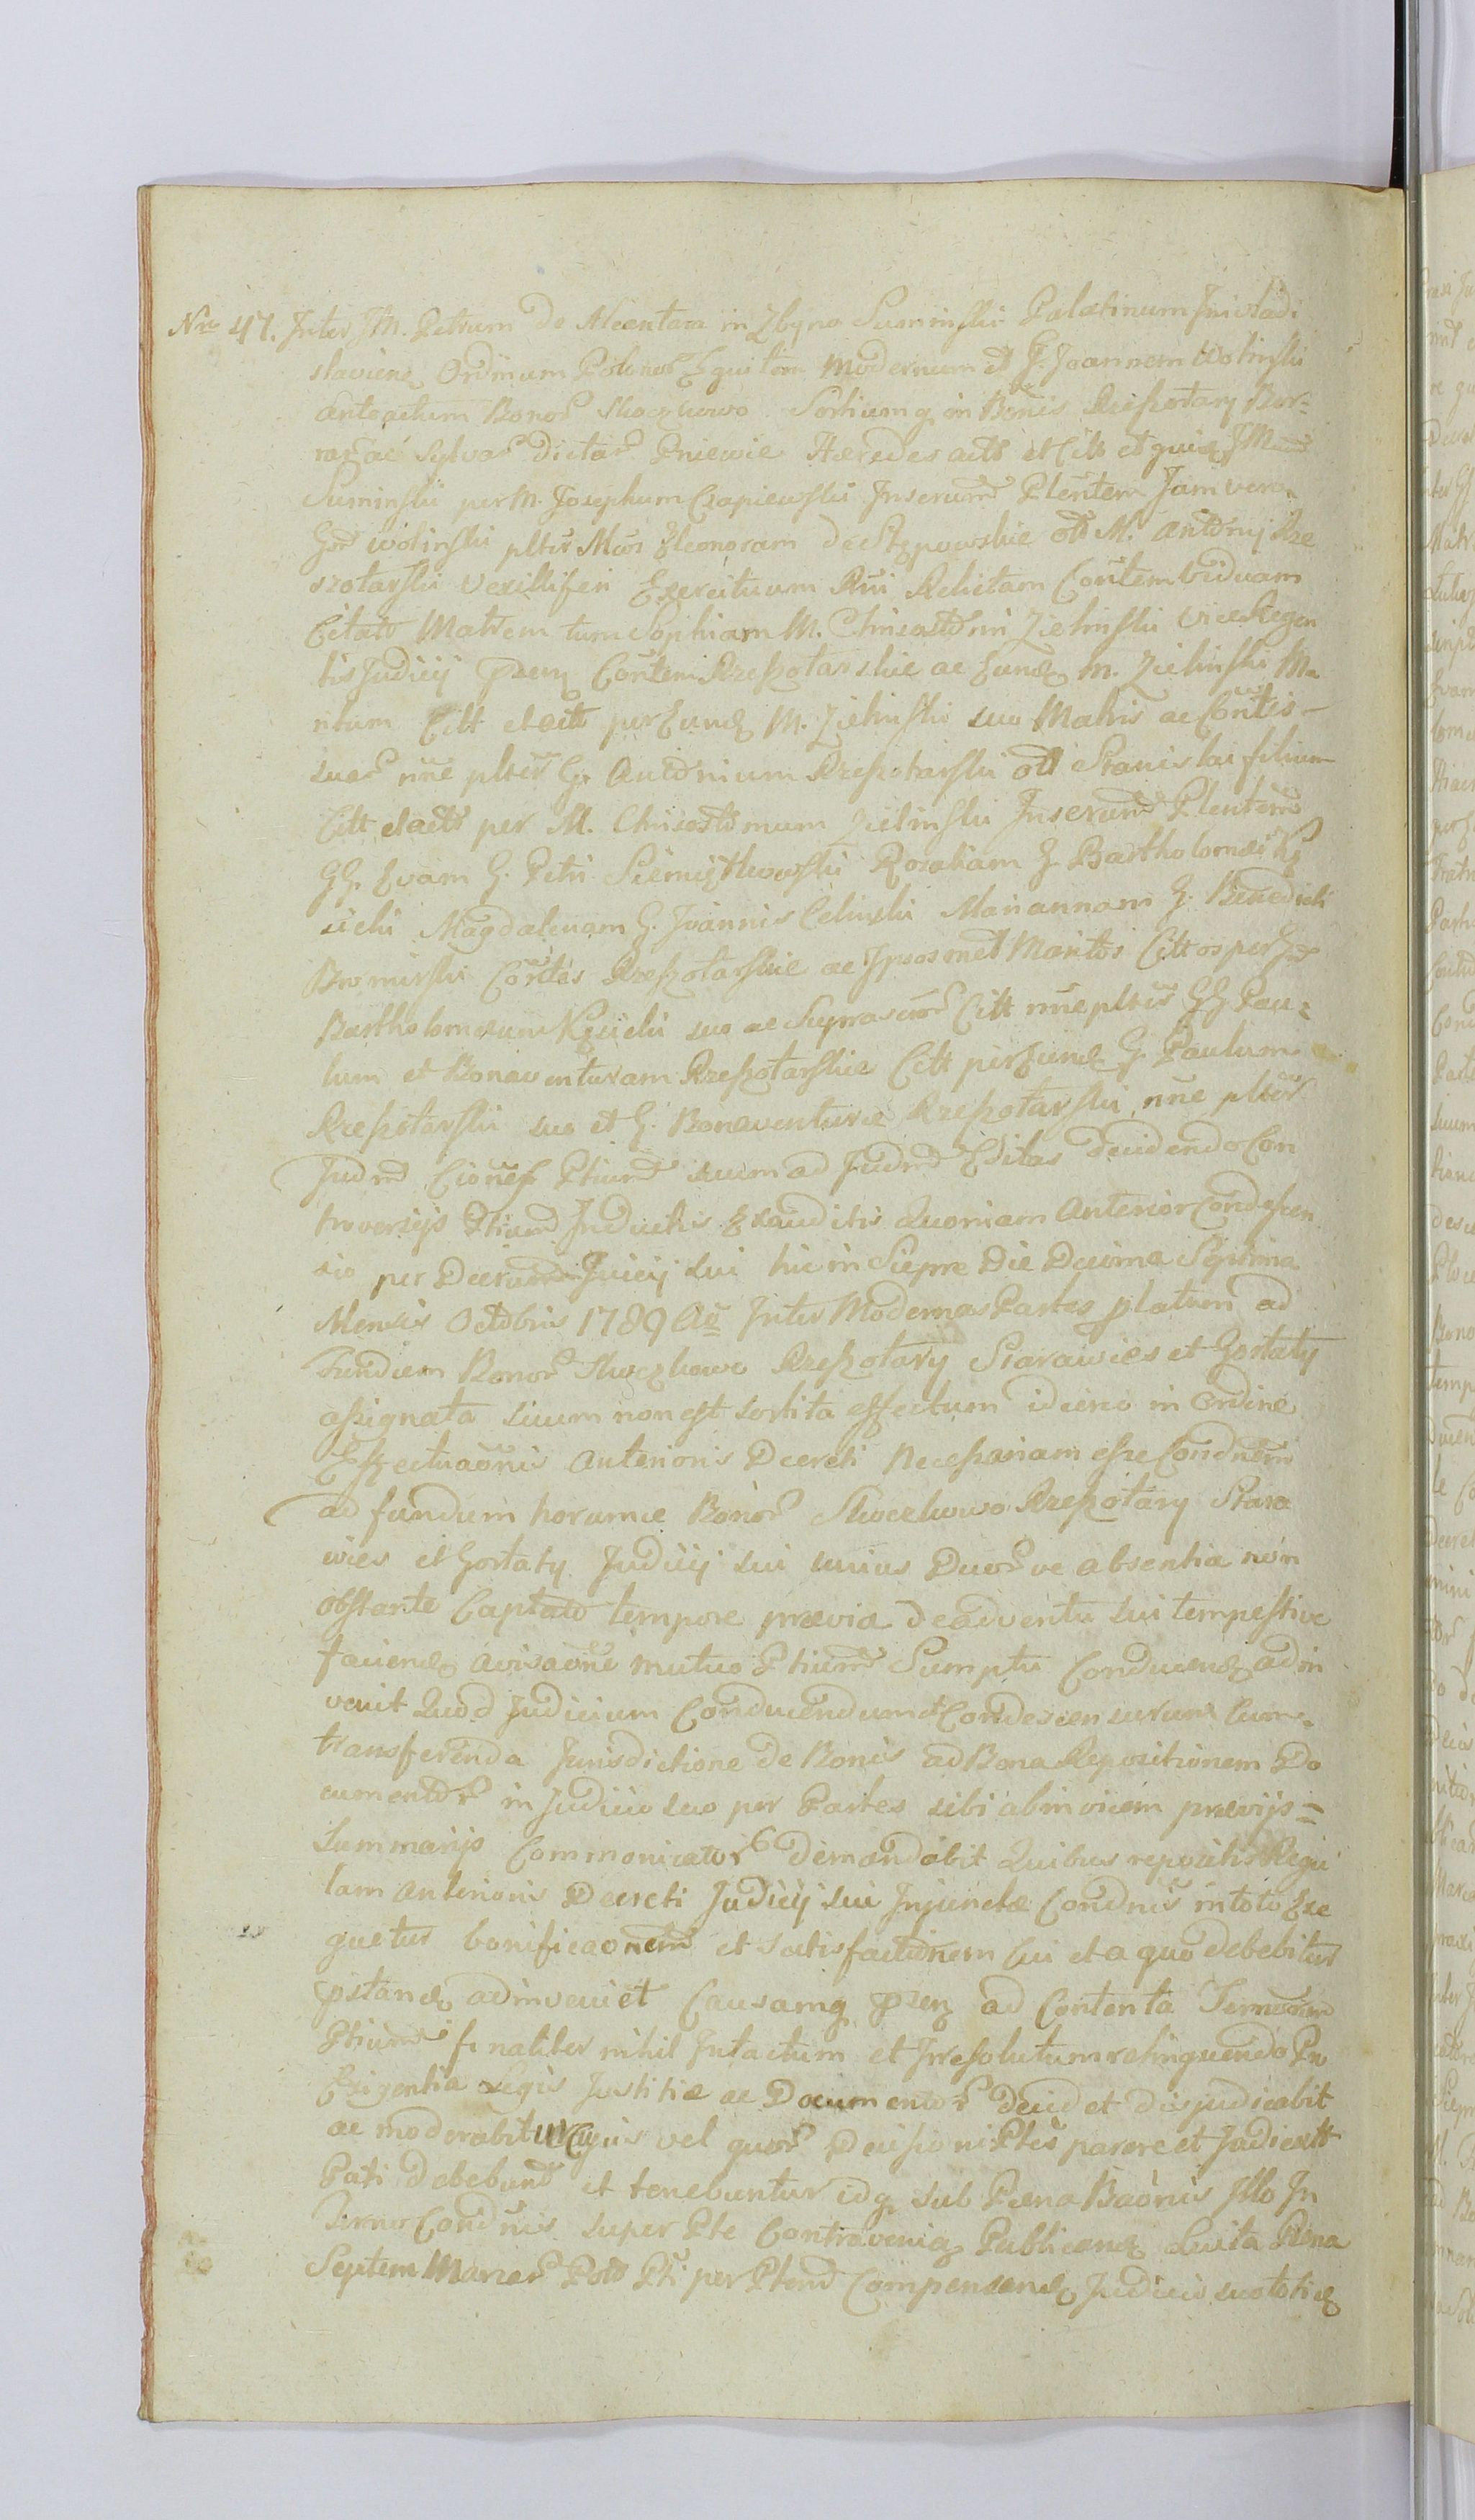 Nro 47. Inter JM. Petrum de in Zbyno Suminski Palatinum Juniwladi
slavien Ordinum Polonor Equitem Modernum et G. Joannem Wolinski
anteactum Bonor Skoczkowo Sortiumq in Bonis Rzeszotary Bor
ac Sylvar dictar Pniewie Haeredes actt et Citt et quid JM
Suminski per M. Josephum Czapiewski Inserund Plentem Jam vero
Wolinski pltis Mcos Eleonoram de Stępowskie olt M. Antonij Rze
szotarski Vexilliferi Exercituum Rni Relictam Contem Viduam
Citato Matrem tum Sophiam M. Chrisostomi Zielinski ViceRegen
tis Judicij Contem Rzeszotarskie ac Eund M. Zielinski Ma
ritum Citt et actt per Eund M. Zielinski suo Matris ac Contis
suar nne pltis G. Antonium Rzeszotarski olt Stanislai filium
Citt et actt per M. Chrisostomum Zielinski Inserund Plentem
GG. Evam G. Petri Siemiątkowski Rosaliam G. Bartholomaei Kę
sicki Magdalenam G. Joannis Celinski Mariannam G. Benedicti
Bromirski Contes Rzeszotarskie ac Ipsosmet Maritos Citt os per Gd
Bartholomaeum Kęsicki suo ac Suprascor Citt nne pltis GG Pau=
lum et Bonaventuram Rzeszotarskie Citt per Eund G. Paulum
Rzeszotarski suo et G. Bonaventurae Rzeszotarski nne pltis
Judm Ptium suum ad Judm Citas decidendo Con
troversijs Ptium Juducitis Exauditis Quoniam Anterior Condescen
sio per Decretum Judicij sui hic in Siepre Die Decima Septima
Mensis Octobris 1789 Ao Inter Modernas Partes platum ad
Fundum Bonor Skoczkowo Rzeszotary Starawies et Gostaty
assignata suum non est sortita effectum idcirco in ordine
Effectuaonis Anterioris Decreti Necessariam esse Condnem
ad fundum horumce Bonor Skoczkowo Rzeszotary Stara
wies et Gostaty Judicij sui unius Duor ve absentia non
obstante Captato tempore praevia de adventu sui tempestive
faciend avisaone mutuo Ptium Sumptu Conducend adin
venit Quod Judicium Conducendum et Condescensurum cum
transferenda Jurisdictione de Bonis ad Bona Repositionem Do
cumentor in Judicio suo per Partes sibi ab invicem praevijs=
Summarijs Commonicator demandabit Quibus repositis Regu
lam anterioris Decreti Judicij sui Injunctae Condnis in toto Exe
quetur bonificaonem et satisfactionem Cui et a quo debebitur
pstand adinveniet Causamq ad Contenta Termorum
Ptium finaliter nihil Intactum et Irresolutum relinquendo Pro
Exigentia Legis Justitiae ac Documentor decidet disjudicabit
ac moderabitur Cujus vel quor Decisioni Ptes parere et Judicatt
Pati debebunt et tenebuntur idq sub Paena Baonis Illo In
Termo Condnis super Pte Contraveniq Publicand Luita Paena
Septem Marcar Polo Pti per Ptem Compensand Judicio suo toties